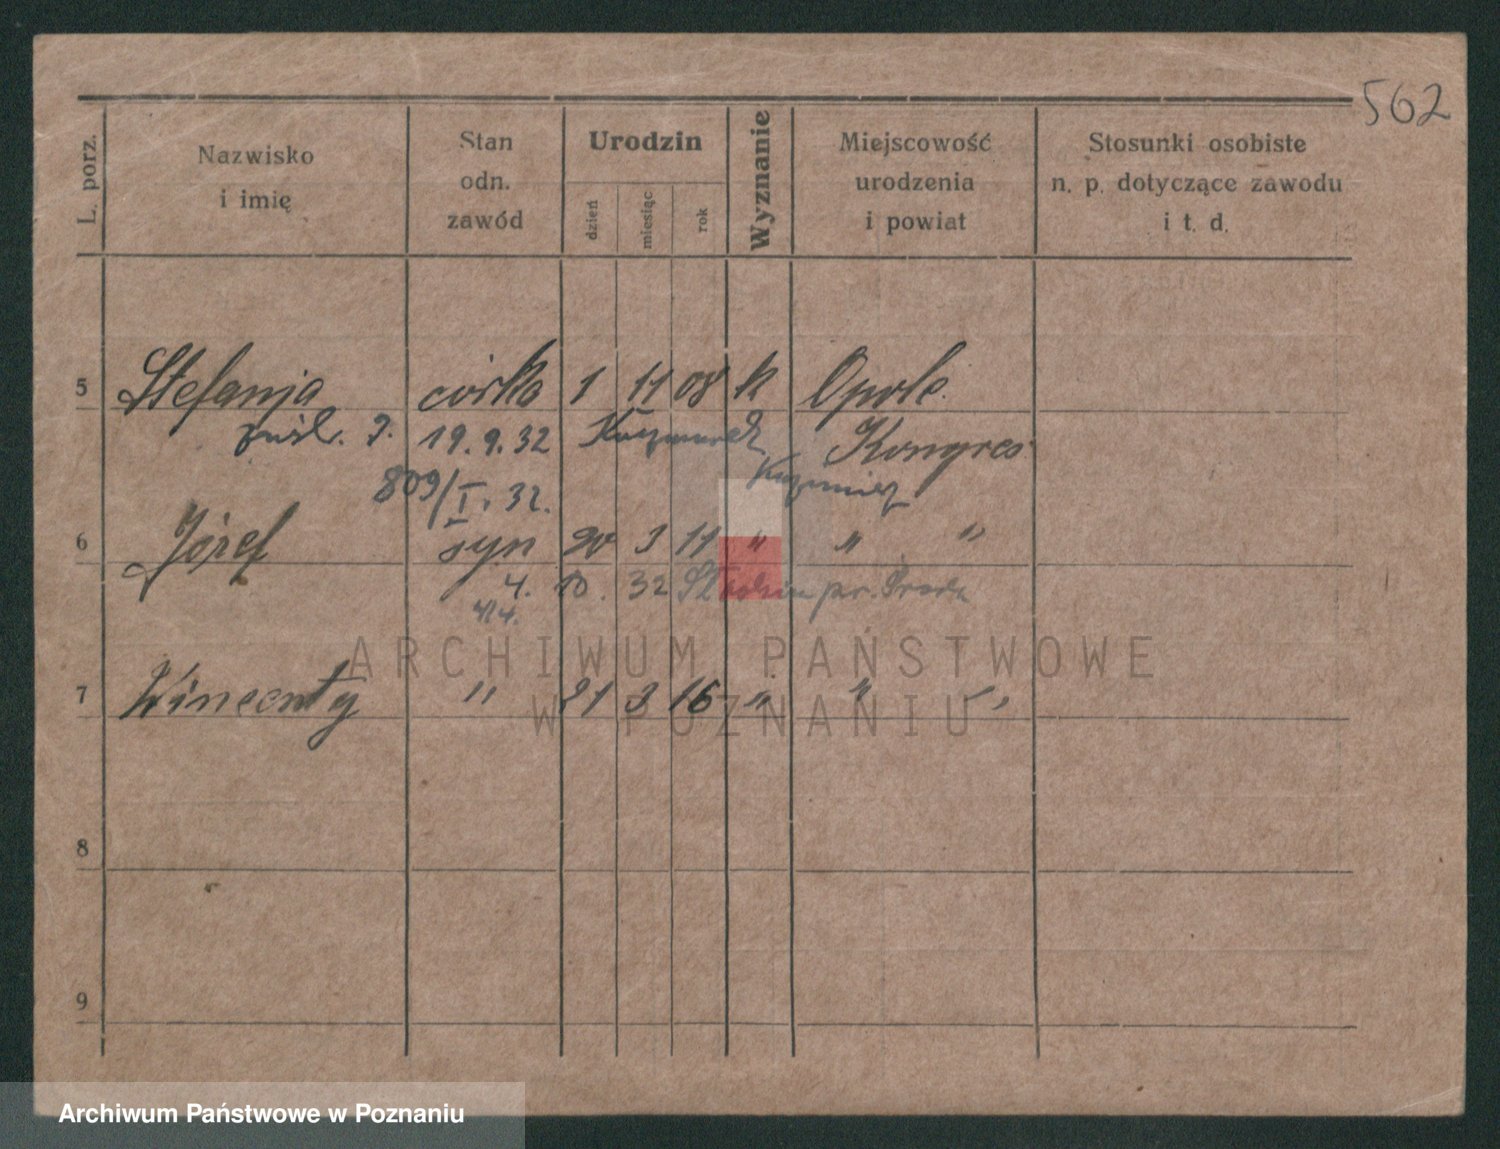 562
L. porz.
Nazwisko
i imię
Stan
odn.
zawód
Urodzin
dzień
miesiąc
rok
Wyznanie
Miejscowość
urodzenia
i powiat
Stosunki osobiste
n. p. dotyczące zawodu
i t. d.
5 Stefanja córka 1 11 08 k Opole
19.9.32 Kaczmarek Kongres
Kazimierz
809/I. 32.
6 Józef syn 20 3 11 " " "
4. 10. 32 pr. Środa
7 Wincenty " 21 3 16 " " "
8
9
ARCHIWUM PAŃSTWOWE
W POZNANIU
Archiwum Państwowe w Poznaniu